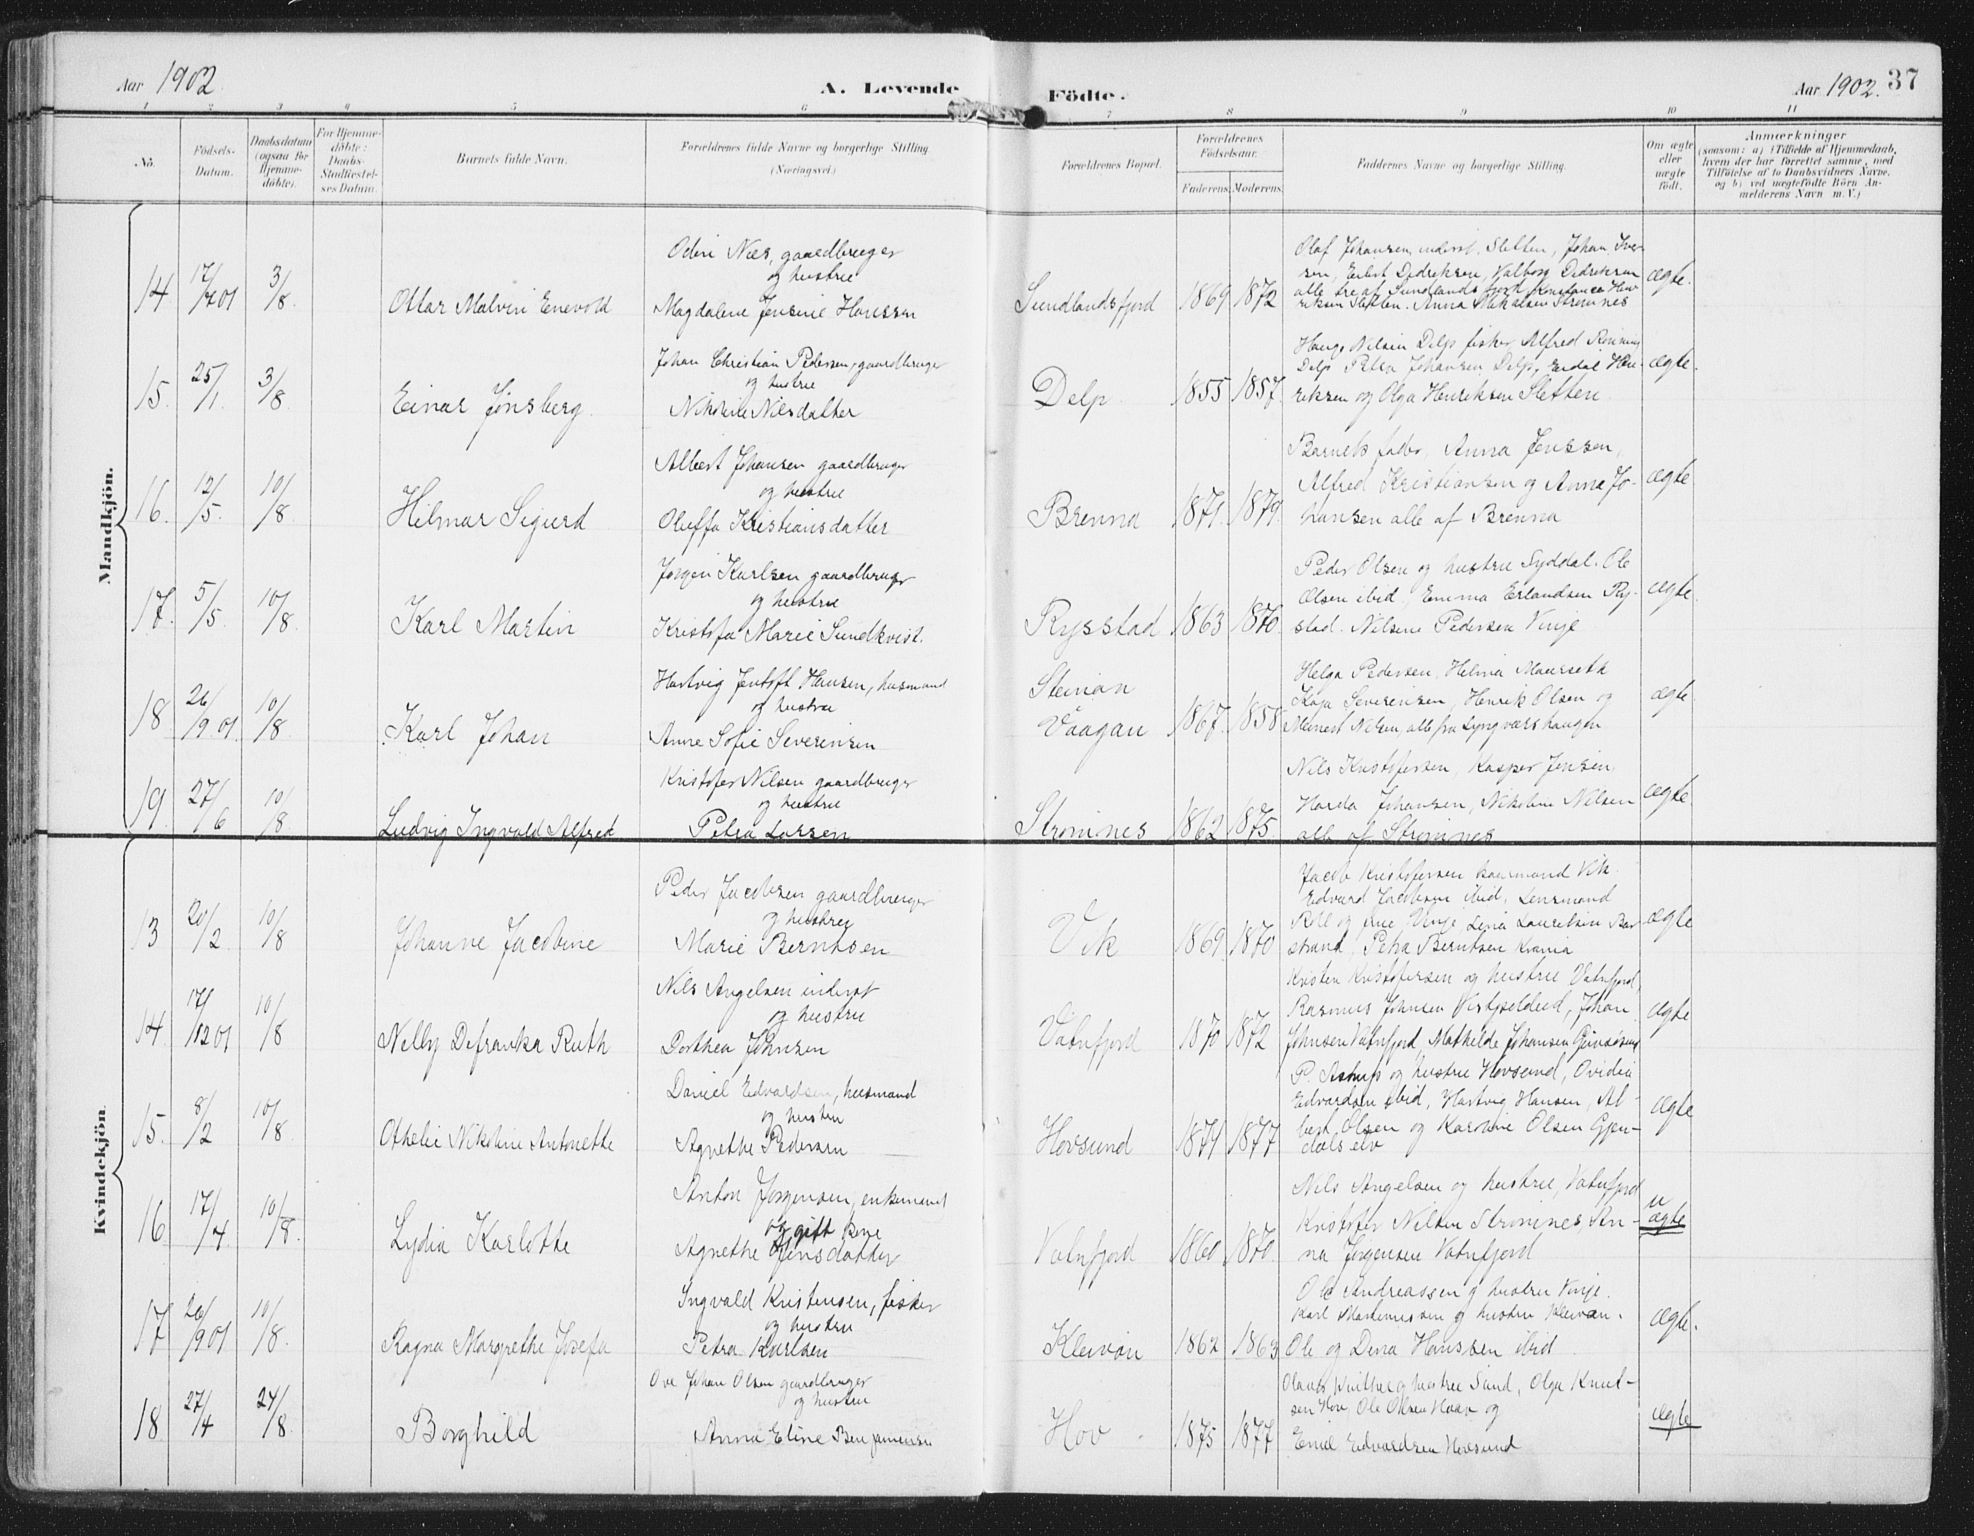 Aar 1902.
A. Levende
Födte.
Aar 1902. 37
1 2 3 4 5 6 7 8 9 10 11
No.
Födsels-
Datum.
Daabsdatum
(ogsaa for
Hjemme-
döbte).
For Hjemme-
döbte:
Daabs-
Stadfæstel-
ses Datum.
Barnets fulde Navn.
Forældrenes fulde Navne og borgerlige Stilling
(Næringsvei.)
Forældrenes Bopæl.
Forældrenes
Födselsaar.
Faderens Moderens
Faddernes Navne og borgerlige Stilling.
Om ægte
eller
uægte
födt.
Anmærkninger
(saasom: a) i Tilfælde af Hjemmedaab,
hvem der har forrettet samme, med
Tilföielse af to Daabsvidners Navne.
og b) ved uægtefödte Börn An-
melderens Navn m. V.)
Mandkjön.
14 17/4 01 3/8 Ottar Malvin Enevold
Odin Nils, gaardbruger
og hustru
Magdalene Jensine Hanssen
Sundlandsfjord 1869 1872
Olaf Johansen, inderst. Sletten, Johan Iver-
sen, Didriksen, Valborg Didriksen
alle tre af Sundlandsfjord Hen-
riksen Sletten. Anna Mikalsen Strømnes
ægte.
15. 25/1. 3/8 Einar Jønsberg.
Johan Christian Pedersen, gaardbruger
og hustru
Nikoline Nilsdatter
Delp. 1855 1857.
Nilsen Delp fisker Alfred
Delp Petra Johansen Delp, Hen-
riksen og Olga Henriksen Sletten.
ægte.
16. 12/5. 10/8 Hilmar Sigurd
Albert Johansen gaardbruger
og hustru
Oluffa Kristiansdatter
Brenna 1871. 1879.
Barnets fader, Anna Jenssen,
Alfred Kristiansen og Anna Jo-
hansen alle af Brenna
ægte
17. 5/5. 10/8 Karl Martin
Jørgen Karlsen gaardbruger
og hustru
Kristofa Marie Sundkvist.
Rysstad 1863 1870.
Peder Olsen og hustru Syddal. Ole
Olsen ibid, Emma Erlandsen Ry-
stad. Nilsine Pedersen Vinje
ægte.
18 26/9 01. 10/8 Karl Johan
Hartvig Jentoft Hansen, husmand
og hustru
Anne Sofie Severinsen
Steinan
Vaagan 1867. 1858
Helga Pedersen, Helma Maurseth
Kaja Severinsen, Henrik Olsen og
Meinert Nilsen, alle fra Lyngværshaugen
ægte
19. 27/6 10/8 Ludvig Ingvald Alfred
Kristofer Nilsen gaardbruger
og hustru
Petra Larsen
Strømnes 1862 1875.
Nils Kristofersen, Kasper Jensen,
Harda Johansen, Nikoline Nilsen
alle af Strømnes
ægte
Kvindekjön.
13 20/2. 10/8 Johanne Jacobine
Peder Jacobsen gaardbruger
og hustru
Marie Berntsen
Vik 1869. 1870
Jacob Kristofersen Vik.
Edvard Jacobsen ibid, Lensmand
Roll og frue, Vinje, Lena Lauritsen Bar-
strand, Petra Berntsen
ægte
14. 17/12 01 10/8 Nelly Defranka Ruth
Nils Angelsen inderst
og hustru
Dorthea Johnsen
Vatnfjord 1870 1872
Kristen Kristofersen og hustru Vatnfjord,
Rasmus Johnsen Vestfjeldeid, Johan
Johnsen Vatnfjord, Mathilde Johansen Gimsøsund
ægte
15. 8/2 10/8. Othelie Nikoline Antonette
Daniel Edvardsen, husmand
og hustru
Agnethe Pedersen
Hovsund 1871 1877
P. Astrup og hustru Hovsund, Ovidia
Edvardsen ibid, Hartvig Hansen, Al-
bert Olsen og Karoline Olsen Gjen-
dals elv
ægte
16 17/4. 10/8. Lydia Karlotte
Anton Jørgensen, enkemand
og gift kone
Agnethe Jensdatter
Vatnfjord 1860 1870.
Nils Angelsen og hustru, Vatnfjord
Kristofer Nilsen Strømnes An-
na Jørgensen Vatnfjord
u
ægte
17 26/9 01 10/8. Ragna Margrethe Josefa
Ingvald Kristensen, fisker
og hustru
Petra Karlsen
Kleivan 1862 1863
Ole Andreassen og hustru Vinje.
Karl Martinussen og hustru Kleivan.
Ole og Dina Hanssen ibid.
ægte.
18 27/4 24/8 Borghild
Ove Johan Olsen gaardbruger
og hustru
Anna Eline Benjaminsen
Hov. 1875 1877
og hustru Sund, Olga Knut-
sen Hov, Ole Olsen og
Emil Edvardsen Hovsund
ægte